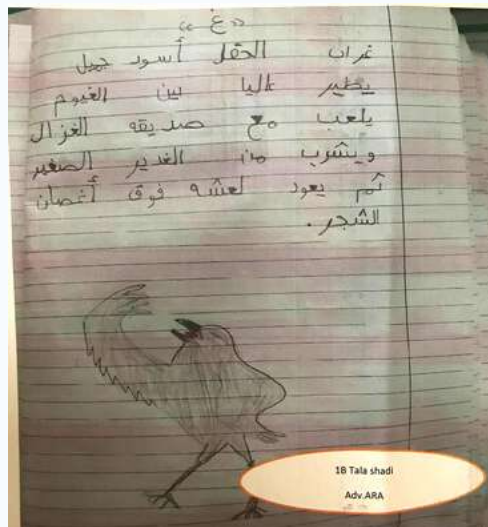 « غ »
غراب الحقل أسود جميل
يطير عاليا بين الغيوم
يلعب مع صديقه الغزال
ويشرب من الغدير الصغير
ثم يعود لعشه فوق أغصان
الشجر.
1B Tala shadi
Adv.ARA